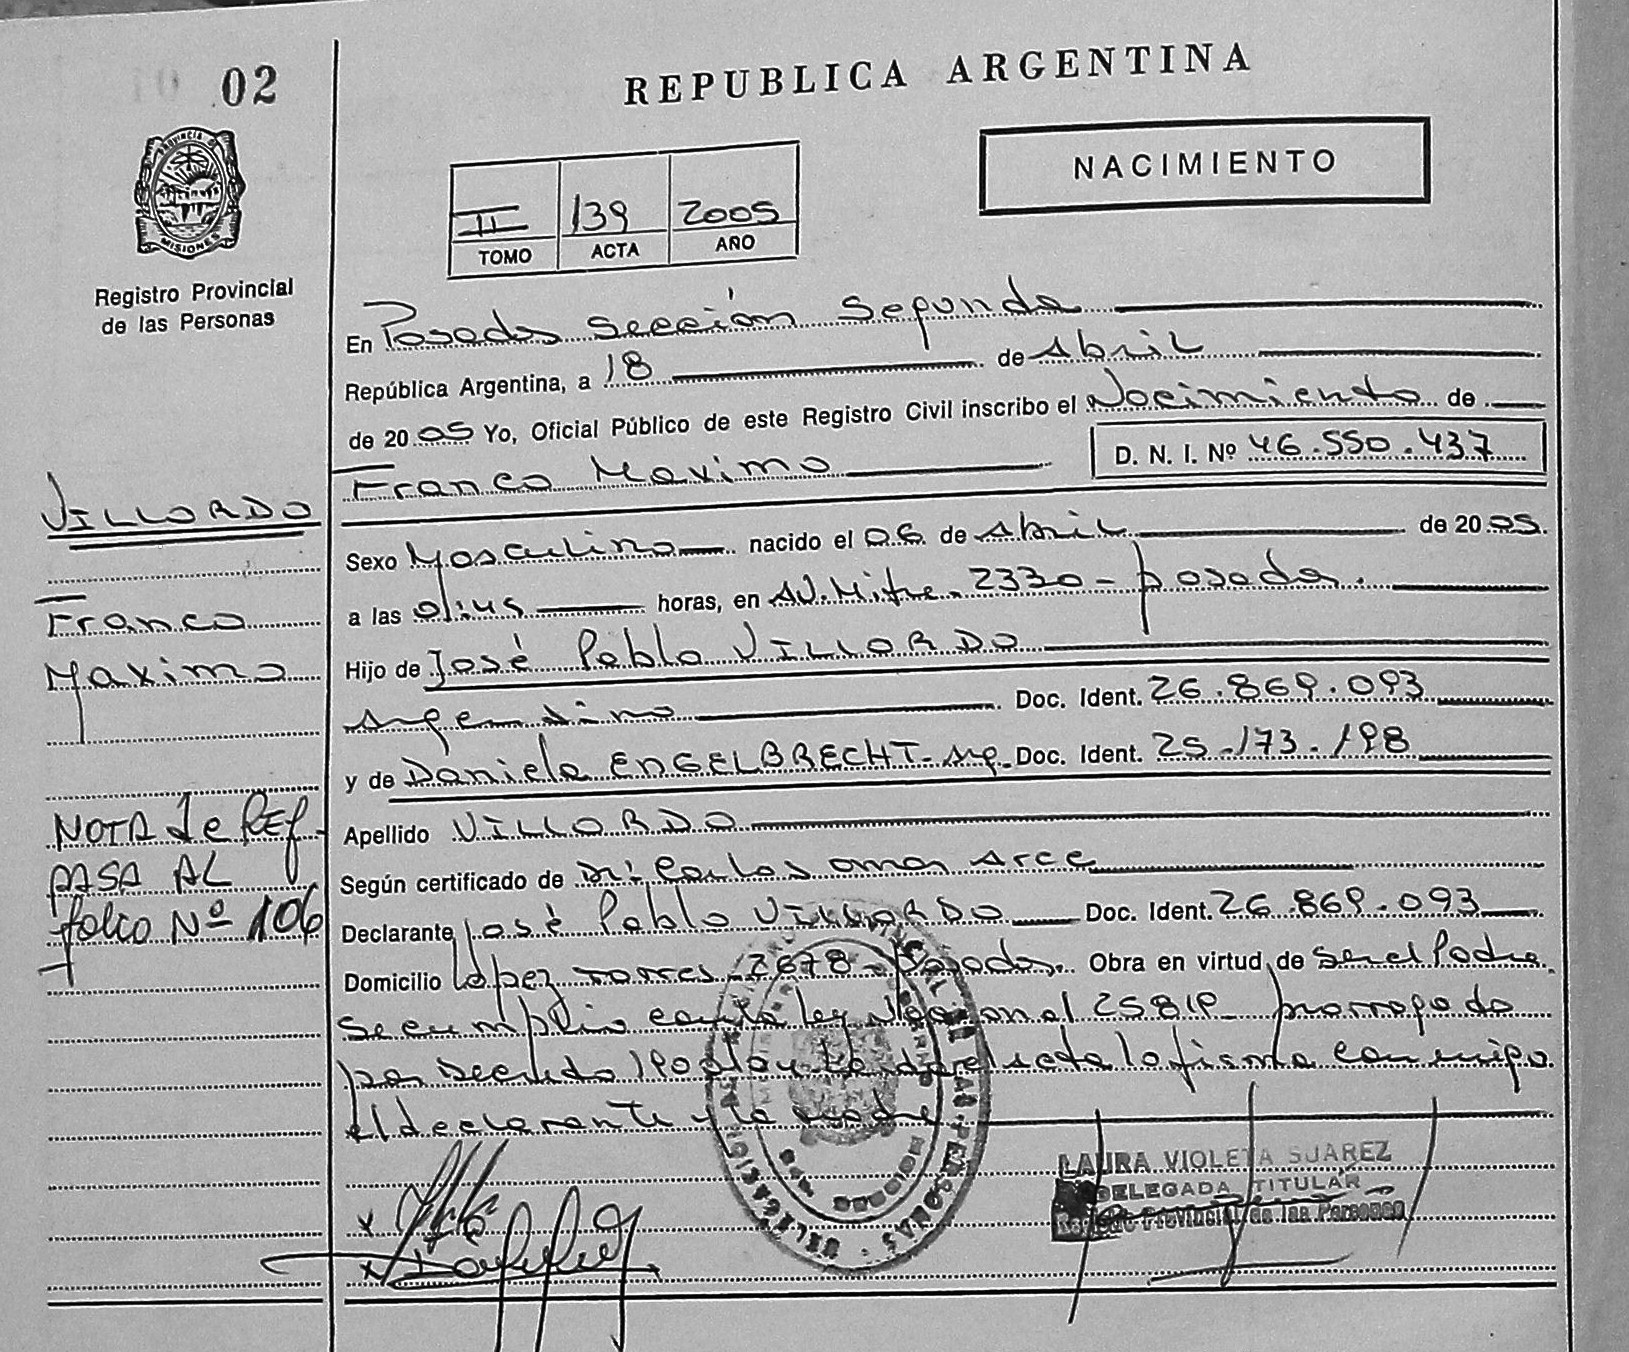 02
REPUBLICA ARGENTINA
NACIMIENTO
II 139 2005
TOMO ACTA AÑO
PROVINCIA DE
MISIONES
Registro Provincial
de las Personas
En Posadas Sección Segunda
República Argentina, a 18 de Abril
de 2005 Yo, Oficial Público de este Registro Civil inscribo el Nacimiento de
Franco Maximo D. N. I. Nº 46.550.437
VILLORDO
Franco
Maximo
Sexo Masculino nacido el 06 de Abril de 2005.
a las 01:45 horas, en AV. Mitre. 2330 - posadas.
Hijo de José Pablo VILLORDO
Argentino Doc. Ident. 26.869.093
y de Daniela ENGELBRECHT - Arg. Doc. Ident. 25.173.198
NOTA de REF
PASA AL
folio Nº 106
Apellido VILLORDO
Según certificado de Dr: Carlos Omar Arce
Declarante José Pablo VILLORDO Doc. Ident. 26.869.093
Domicilio López Torres - 2678 - Posadas. Obra en virtud de Ser el Padre
Se cumplio con la ley Nacional 25819 prorrogado
por Decreto acta lo firma conmigo
el declarante y la madre
LAURA VIOLETA SUAREZ
DELEGADA TITULAR
Registro Provincial de las Personas